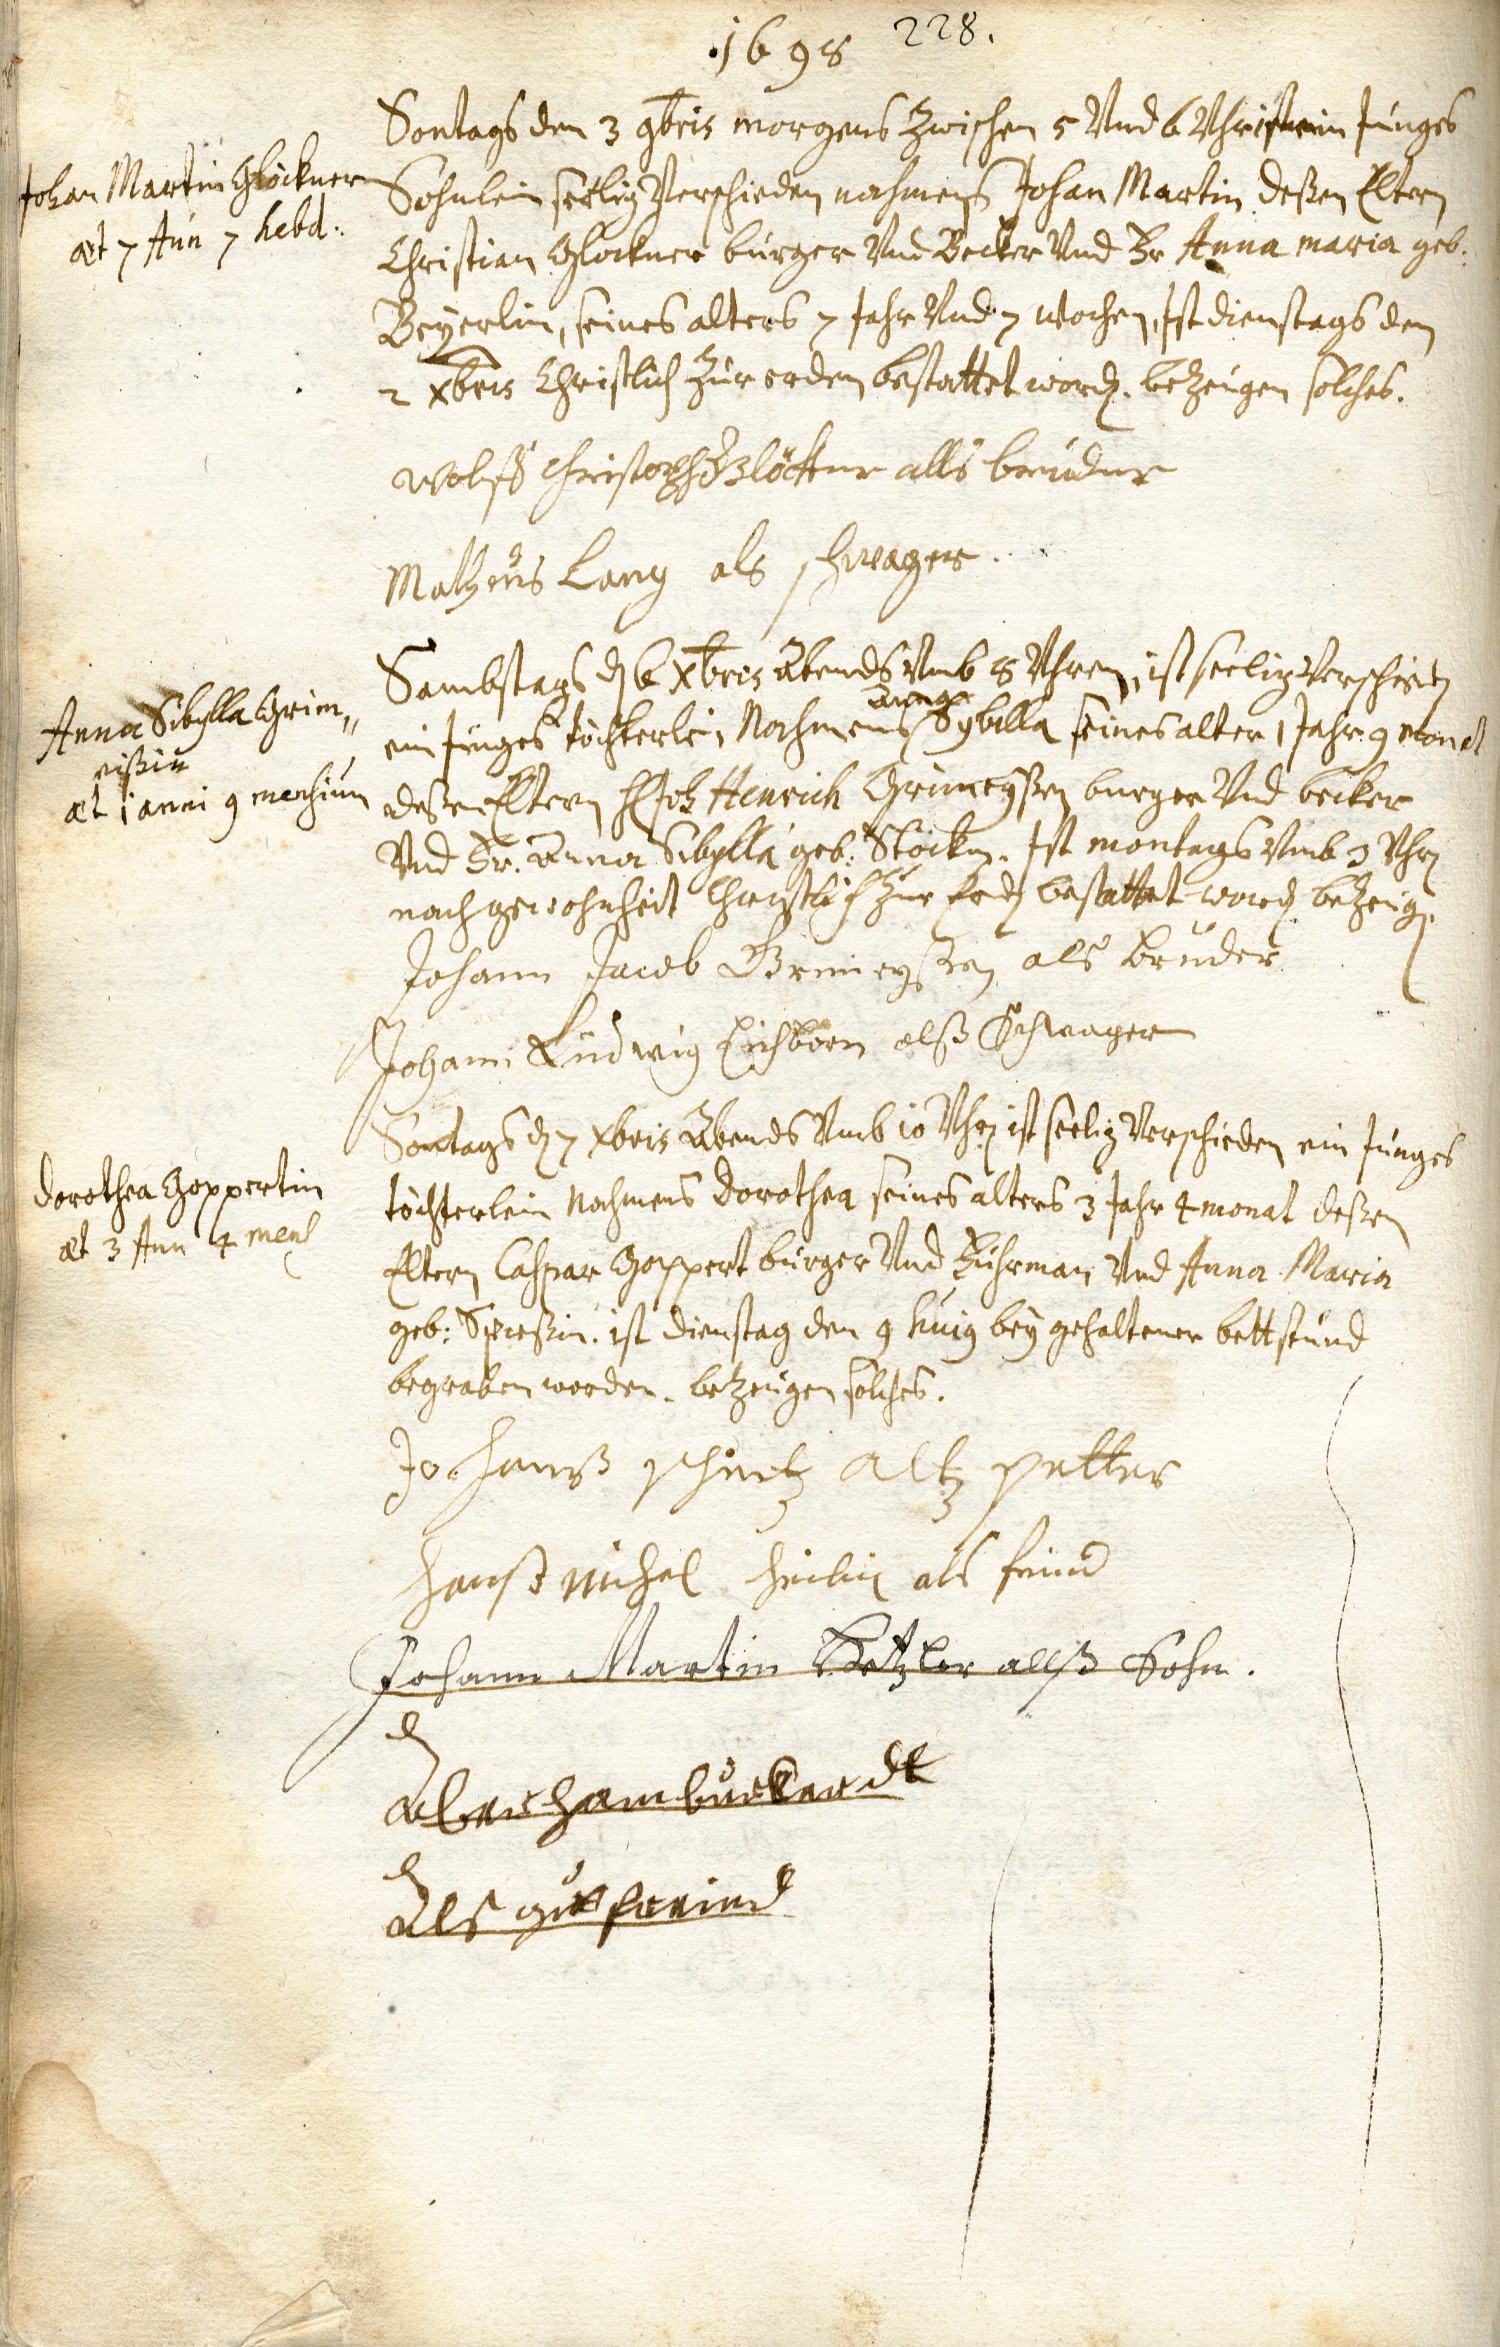 1698 228.
Johan Martin Glöckner
æt 7 Ann 7 hebd:
Sontags den 3 9bris morgens Zwischen 5 Vnd 6 Vhr ist ein Junges
Sohnlein seelig Verschieden nahmens Johan Martin deßen Eltern
Christian Glöckner burger Vnd Becker Vnd Fr Anna maria geb:
Beyerlin, seines alters 7 Jahr Vnd 7 wochen, Ist dienstags den
2 Xbris Christlich Zur erden bestattet word. beZeugen solches.
Wolff Christoph Glöckner alls bruder
Matheus Lang als schwager.
Anna Sibylla Grim„
eißin
æt 1 anni 9 mensium
Sambstags d 6 Xbris Abends Vmb 8 Vhren, ist seelig Verschied
ein Junges töchterle, Nahmens Anna Sybilla seines alter 1 Jahr 9 monat
deßen Eltern H Joh Henrich Grimeyßen burger Vnd becker
Vnd Fr. Anna Sibylla geb: Stöckin. Ist montags Vmb 3 Vhr
nach gewohnheit Christlich Zur Erd bestattet word beZeug.
Johann Jacob Grimeyßen als bruder
Johann Ludwig Eichhorn alß Schwager
dorothea Goppertin
æt 3 Ann 4 mens
Sontags d 7 Xbris Abends Vmb 10 Vhr ist seelig Verschieden ein Junges
töchterlein Nahmens dorothea seines alters 3 Jahr 4 monat deßen
Eltern Caspar Goppert burger Vnd Fuhrman Vnd Anna Maria
geb: Spießin. ist dienstag den 9 huig bey gehaltener bettstund
begraben worden. beZeugen solches.
Johanß schütz altz petter
Hanß Michel als freind
Johann Martin Betzler allß Sohn.
Aberham burkardt
Als gut freind